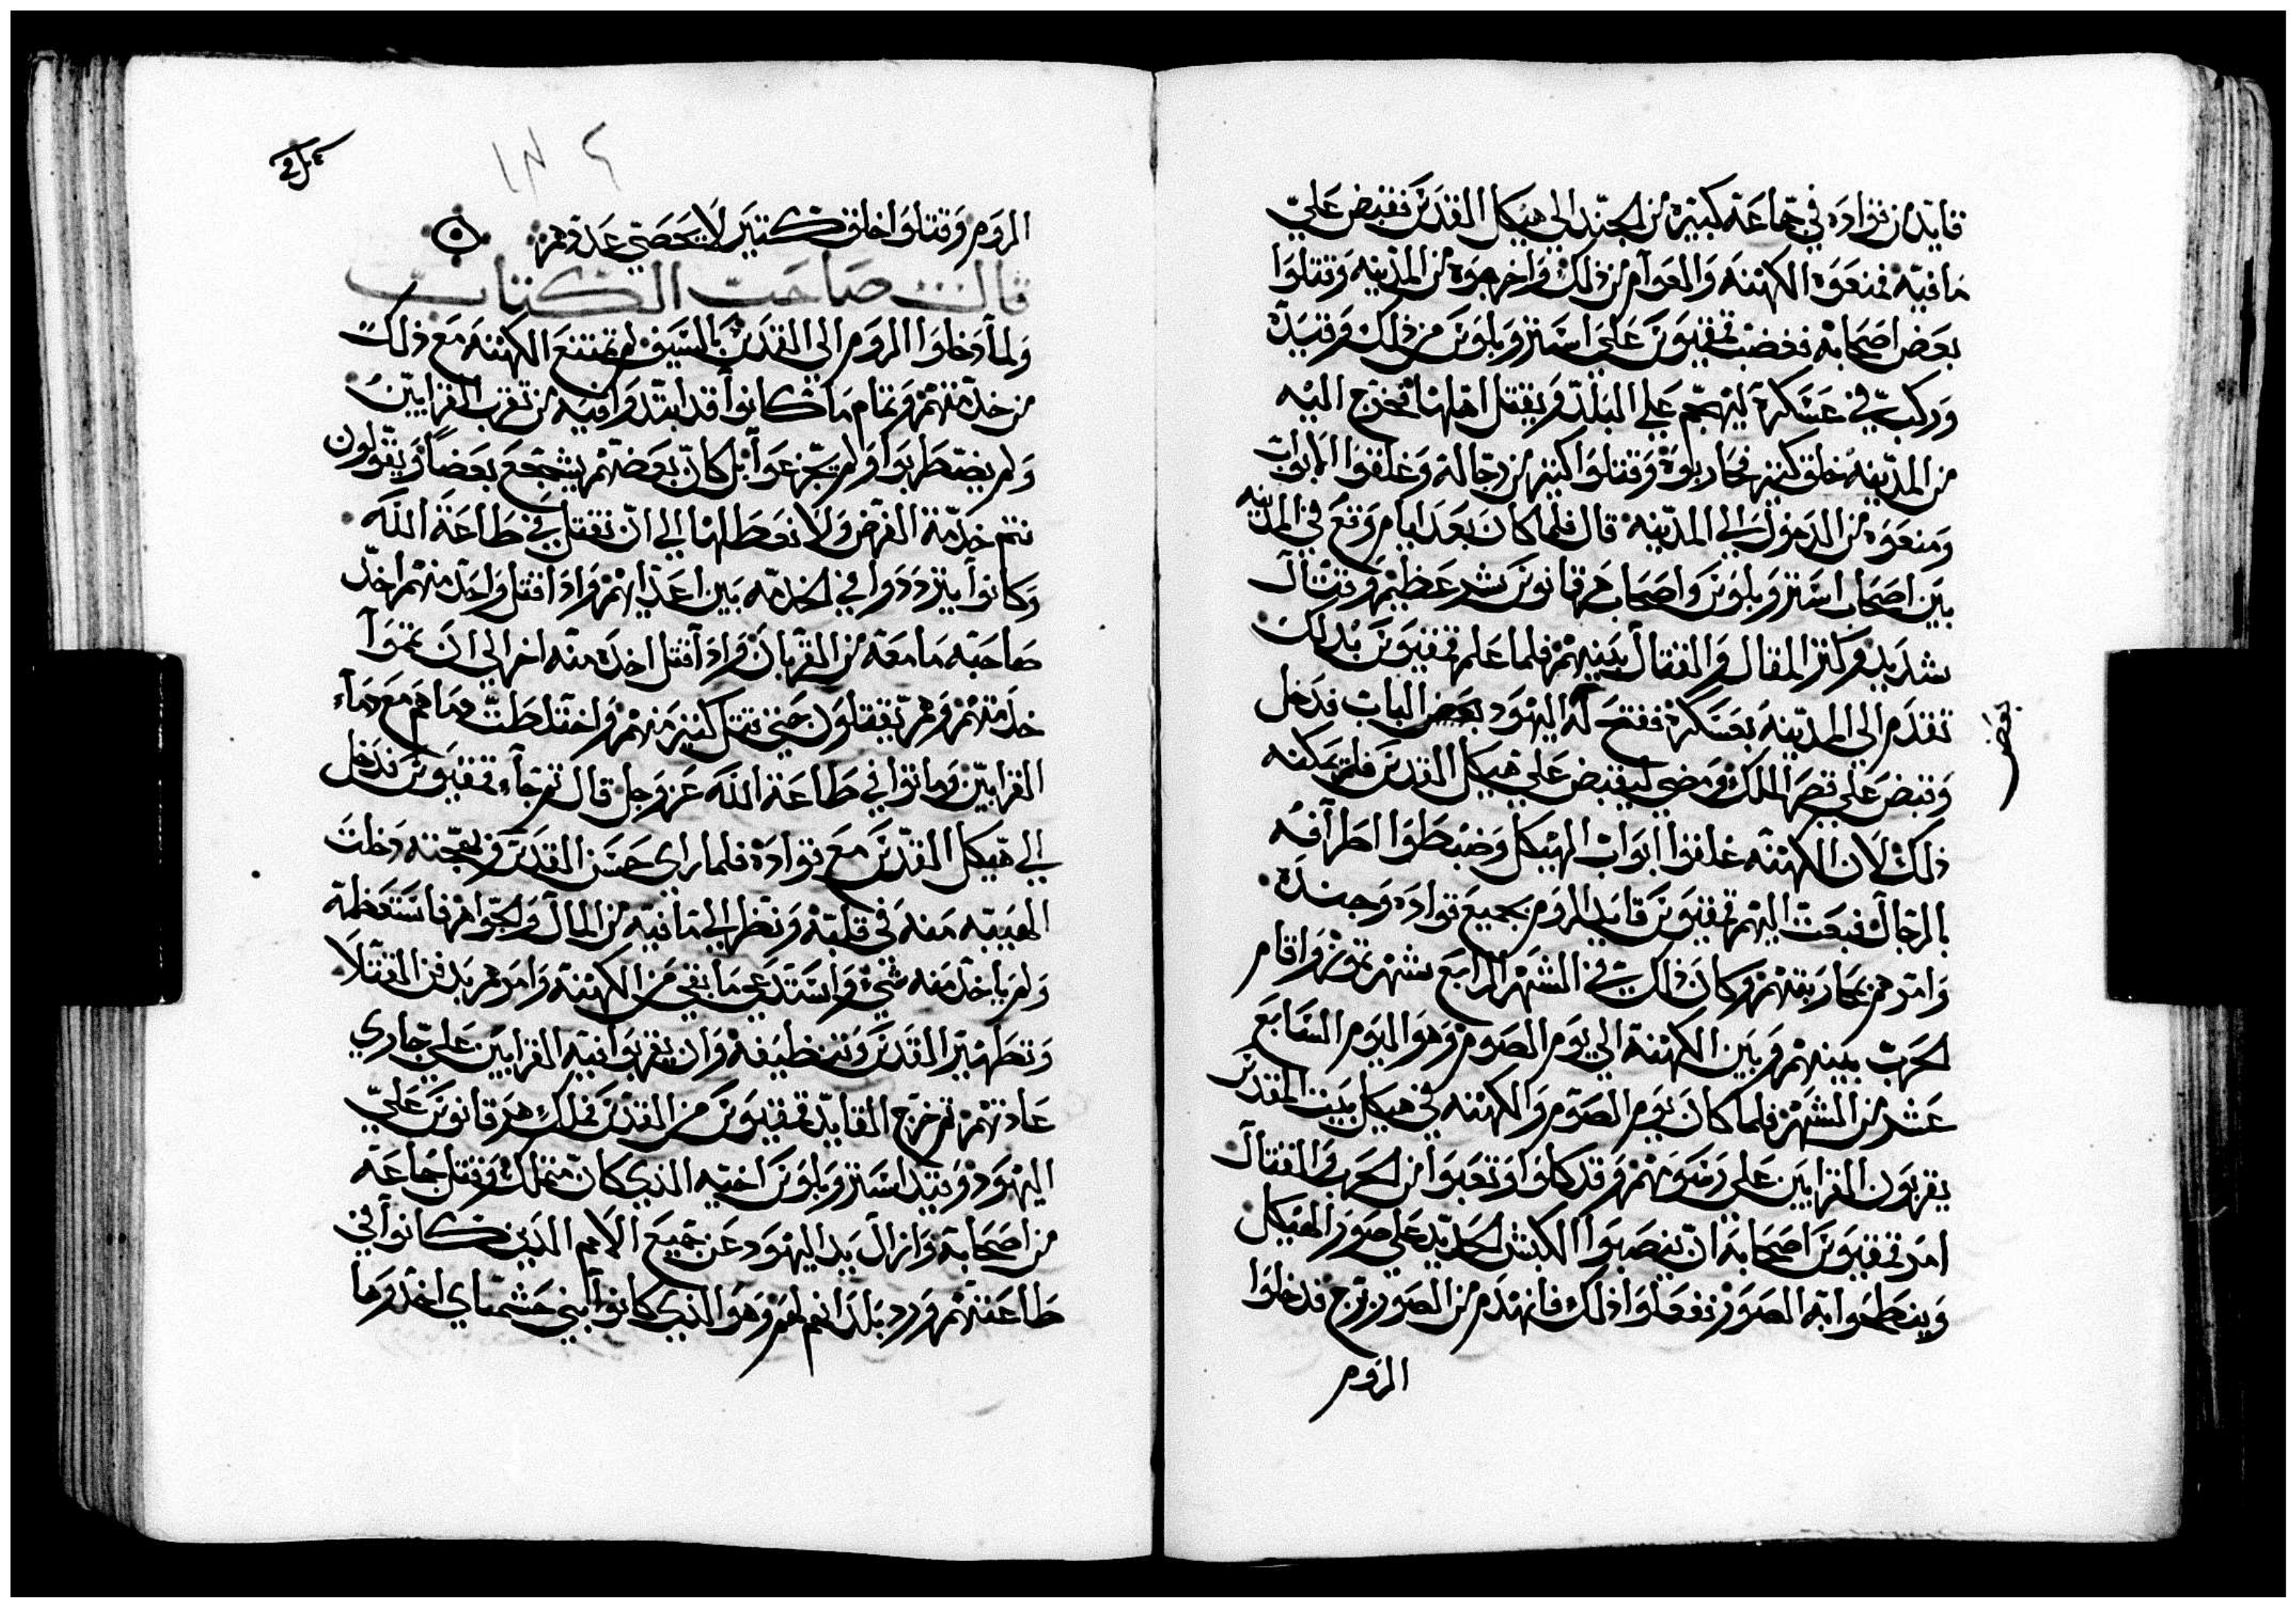 قايد من قواده في جماعة كبيرة من الجند الي هيكل القدس فقبض علي
ما فيه فمنعوه الكهنه والعوام من ذلك واخرجوه من المدينه وقتلوا
بعض اصحابه فغضب تمفيوس علي استروبلوس من ذلك وقيده
وركب في عسكره ليهجم علي البلد ويقتل اهلها فخرج اليه
من المدينه خلق كتير فحاربوه وقتلوا كتير من رجاله وغلقوا الابواب
ومنعوه من الدخول الي المدينه قال فلما كان بعد ايام وقع في المدينه
بين اصحاب استروبلوس واصحاب هرقانوس شر عظيم وقتال
شديد وكتر المقال والقتال بينهم فلما علم تمفيوس بذلك
تقدم الي المدينه بعسكره ففتح له اليهود بعض الباب فدخل
بعض
وقبض علي قصر الملك ومضي ليقبض علي هيكل القدس فلم يمكنه
ذلك لان الكهنه غلقوا ابواب الهيكل وضبطوا اطرافه
بالرجال فبعت اليهم تمفيوس قايد الروم بجميع قواده وجنده
وامرهم بمحاربتهم وكان ذلك في الشهر الرابع شهر تموز واقام
الحرب بينهم وبين الكهنة الي يوم الصوم وهو اليوم السابع
عشر من الشهر فلما كان يوم الصوم والكهنه في هيكل بيت المقدس
يقربون القرابين علي رسومهم وقد كلوا وتعبوا من الحرب والقتال
امر تمفيوس اصحابه ان ينصبوا الكبش الحديد علي صور الهيكل
وينطحوا به الصور ففعلوا ذلك فانهدم من الصور برج فدخلوا
الروم
الروم وقتلوا خلق كتير لا يحصي عددهم
قال صاحب الكتاب
ولما دخلوا الروم الي القدس بالسيف لم تمتنع الكهنه مع ذلك
من خدمتهم وتمام ما كانوا قد ابتدوا فيه من تقرب القرابين
ولم يضطربوا ولم يجزعوا بل كان بعضهم يشجع بعضا ويقولون
نتم خدمة الفرض ولا نعطلها الي ان نقتل في طاعة الله
وكانوا يترددوا في الخدمه بين اعدايهم واذا قتل واحد منهم اخد
صاحبه ما معه من القربان واذا قتل اخده منه اخر الي ان تموا
خدمتهم وهم يقتلون حتي قتل كتير منهم واختلطت دماهم مع دماء
القرابين وماتوا في طاعة الله عز وجل قال تم جاء تمفيوس فدخل
الي هيكل القدس مع قواده فلما راي حسن القدس وبهجته دخلت
الهيبه منه في قلبه ونظر الي ما فيه من المال والجواهر فاستعظمه
ولم ياخد منه شي واستدعي ما بقي من الكهنة وامرهم بدفن القتلا
وتطهير القدس وتنظيفه وان يقربوا فيه القرابين علي جاري
عادتهم تم خرج القايد تمفيوس من القدس فملك هرقانوس علي
اليهود وقيد استروبلوس اخيه الذي كان متملك وقتل جماعه
من اصحابه وازال يد اليهود عن جميع الامم الدين كانوا في
طاعتهم ورد بلدانهم لهم وهو الذي كانوا بني حشمناي اخدوها